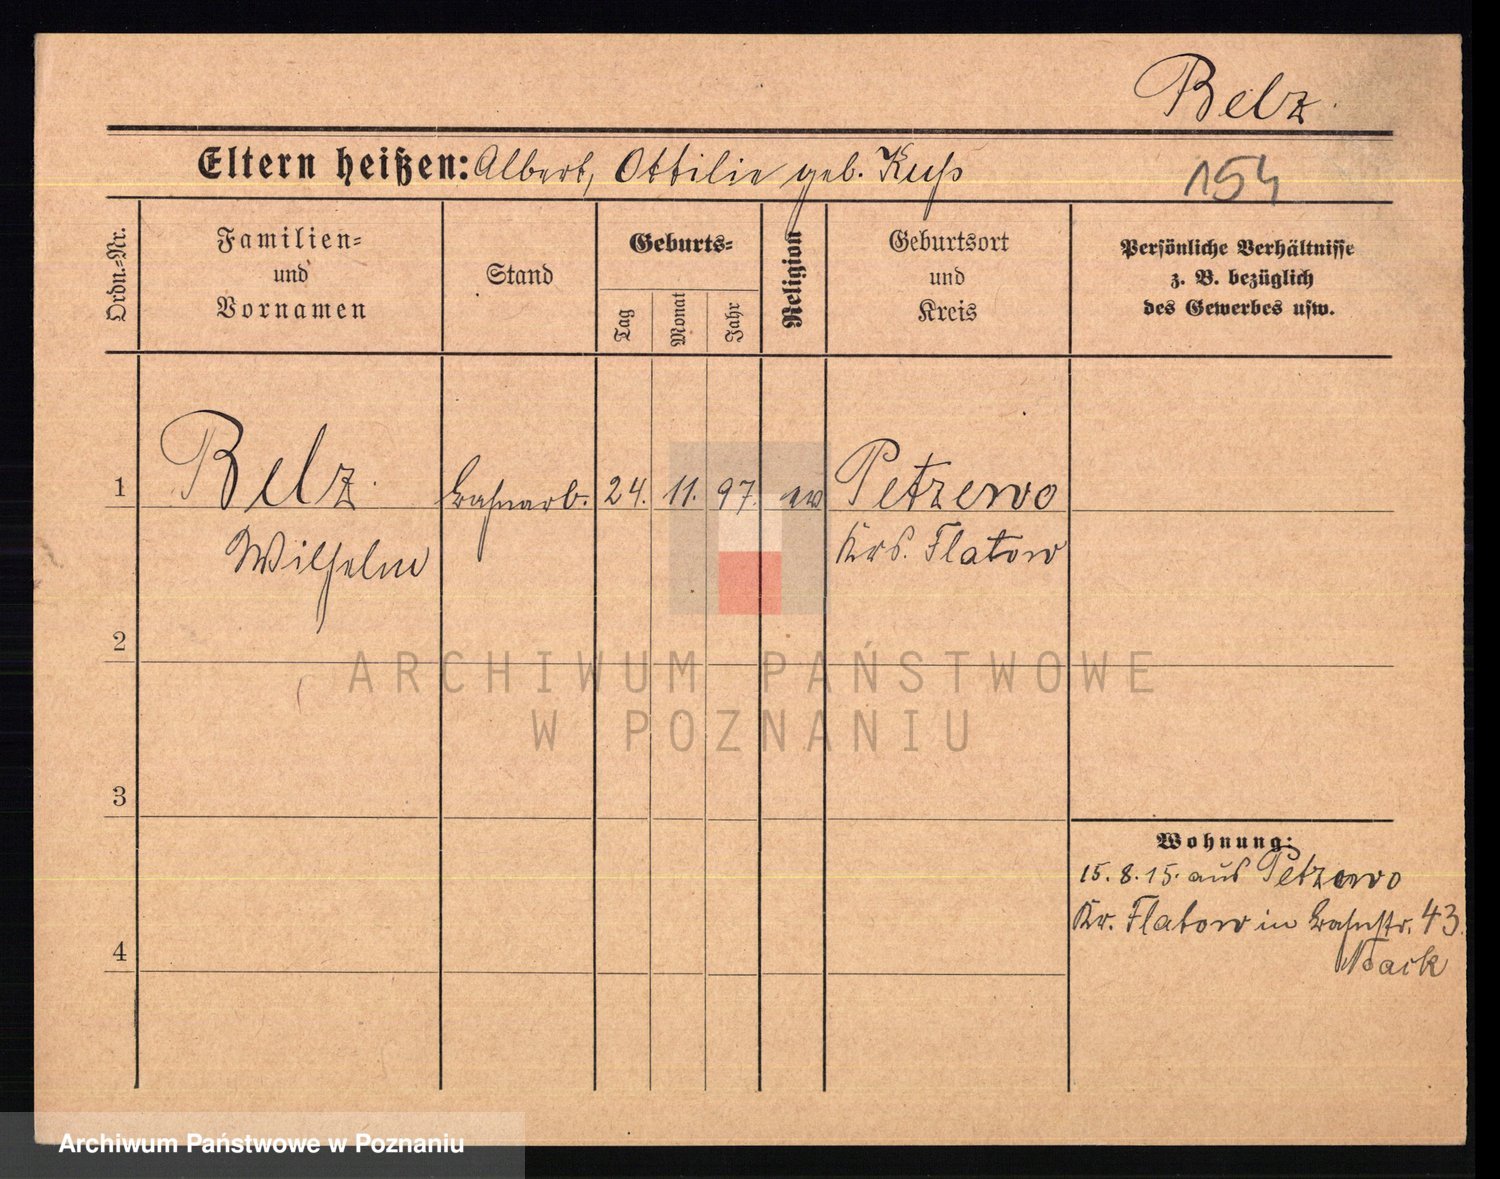 Belz.
Eltern heißen: Albert, Ottilie geb. Kuß
154
Ordn.-Nr.
Familien-
und
Vornamen
Stand
Geburts-
Tag
Monat
Jahr
Religion
Geburtsort
und
Kreis
Persönliche Verhältnisse
z. B. bezüglich
des Gewerbes usw.
1 Belz. Bahnarb. 24. 11. 97. ev Petzewo
Wilhelm Krs. Flatow
2
ARCHIWUM PAŃSTWOWE
W POZNANIU
3
Wohnung:
15. 8. 15. aus Petzewo
Kr. Flatow in Bahnstr. 43.
Noack
4
Archiwum Państwowe w Poznaniu